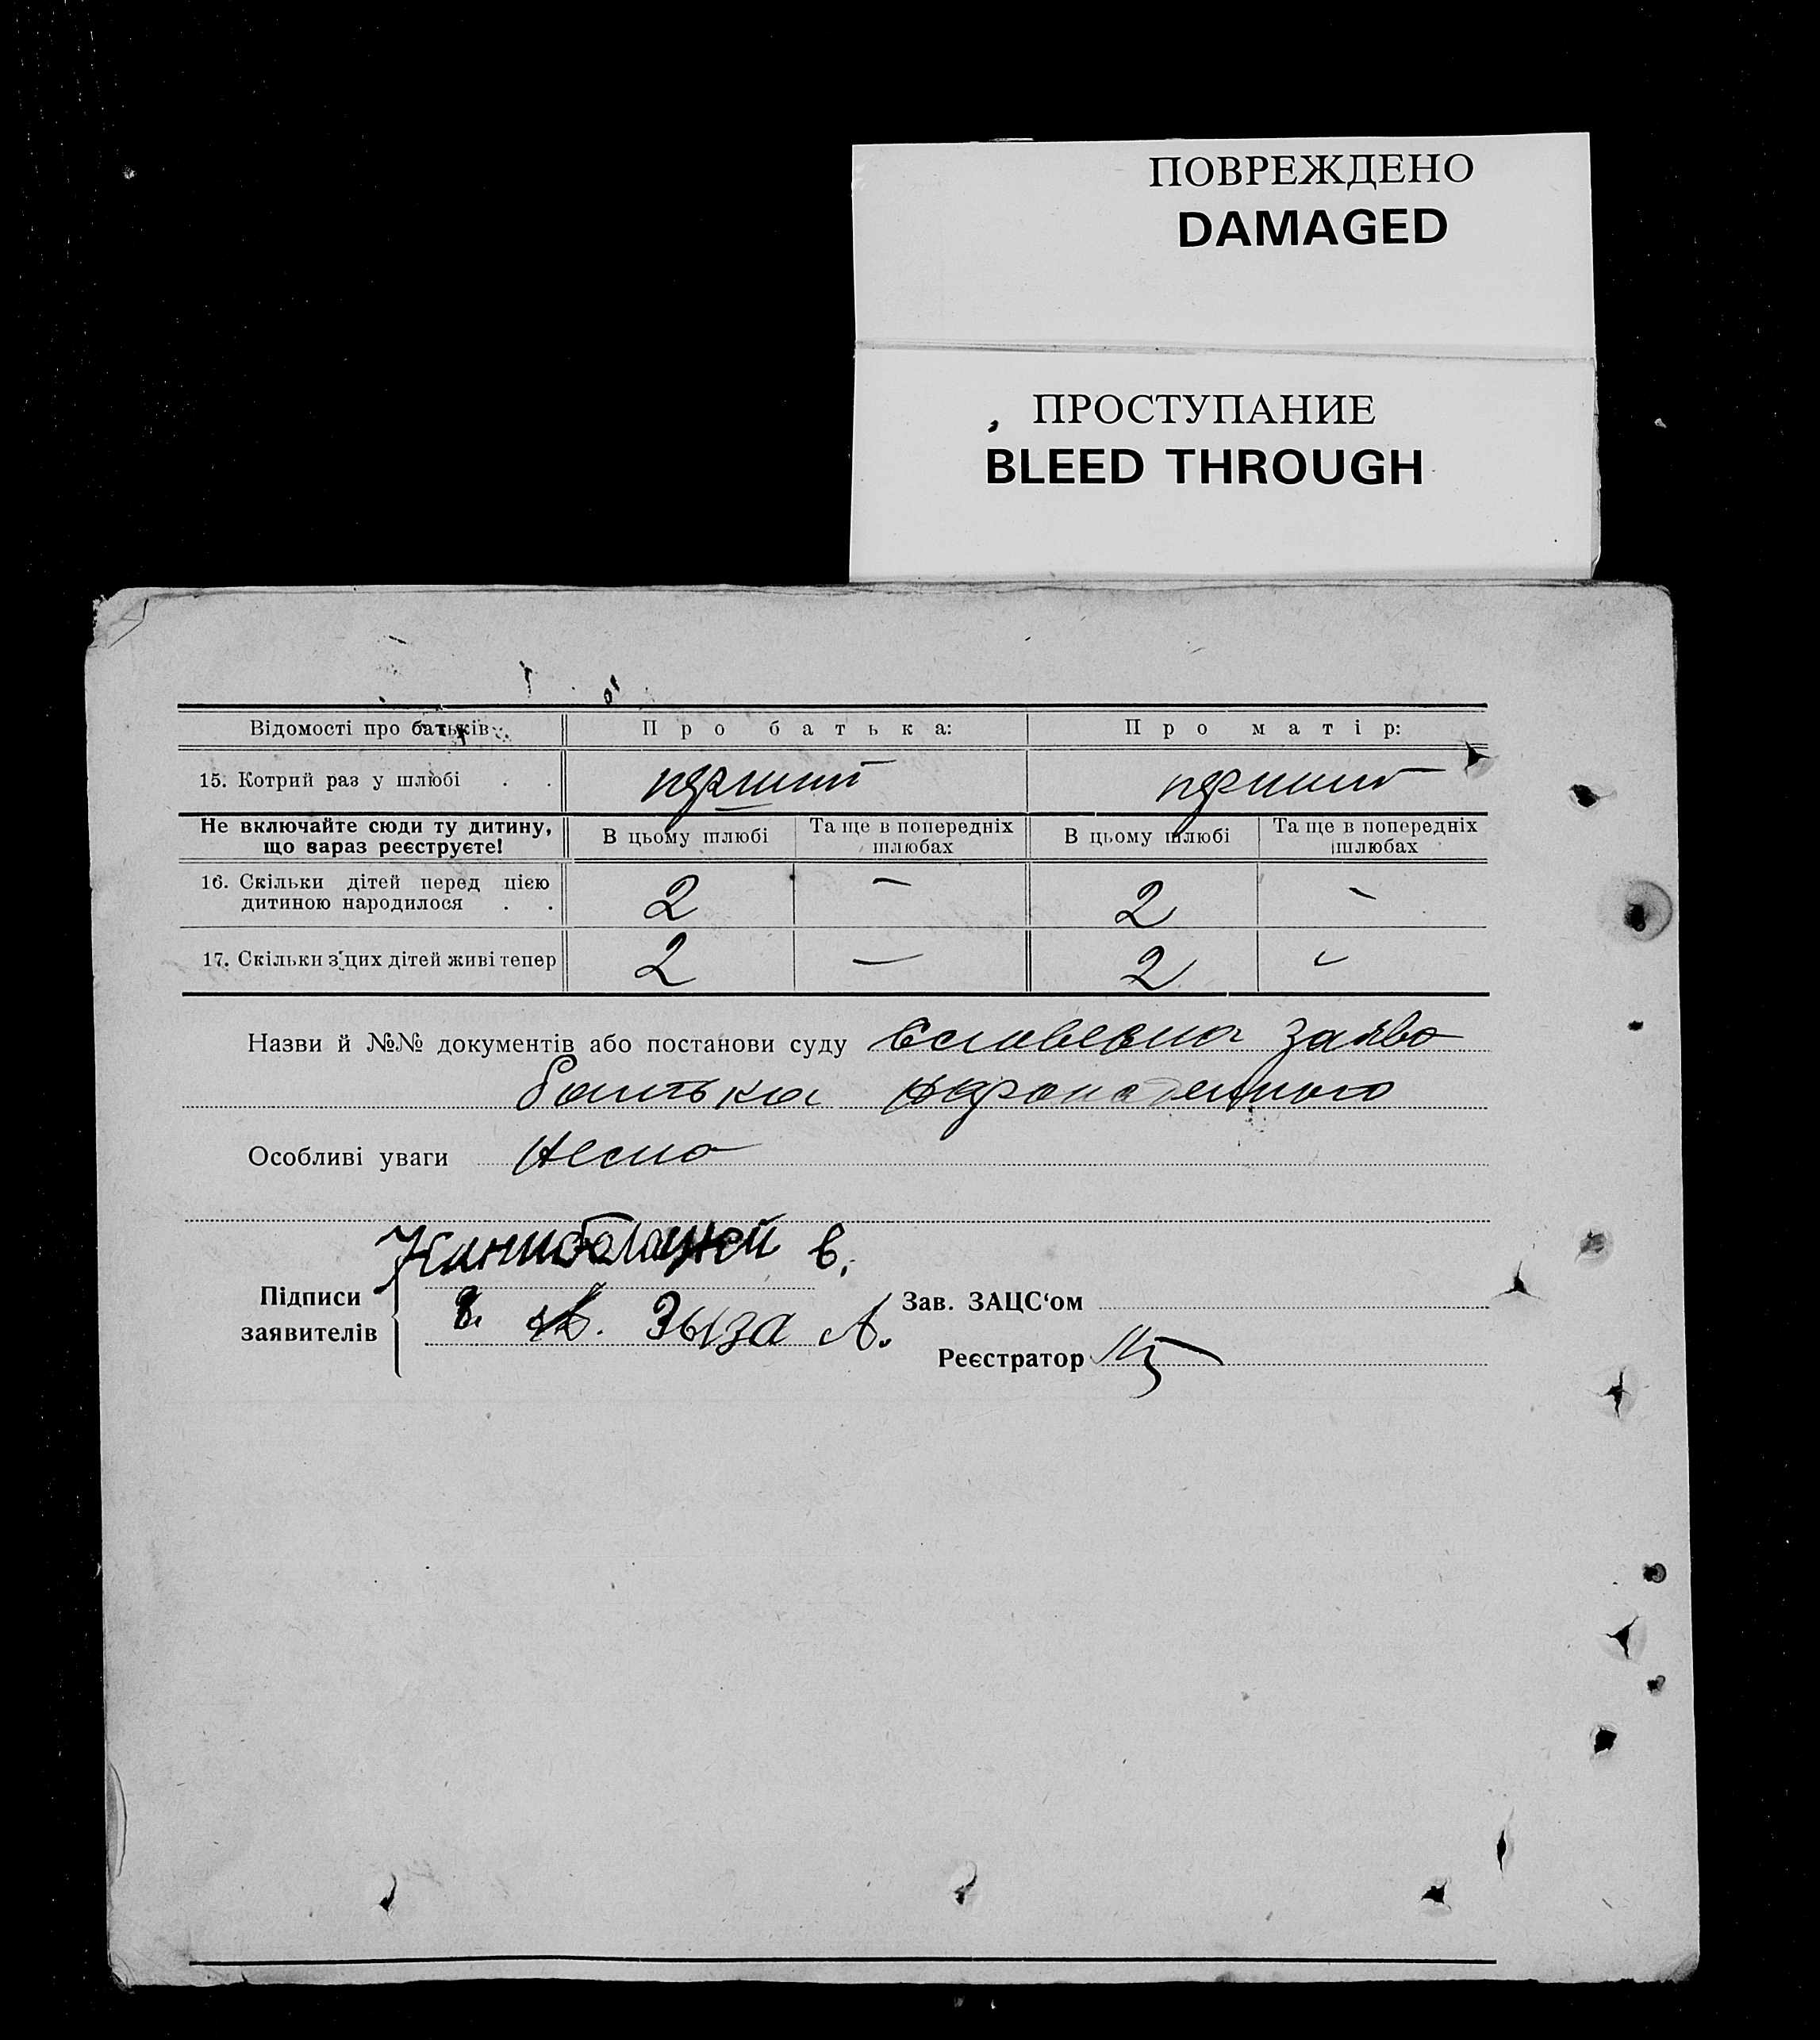 ПОВРЕЖДЕНО
DAMAGED
ПРОСТУПАНИЕ
BLEED THROUGH
Відомості про батьків Про батька: Про матір:
15. Котрий раз у шлюбі . . перший перший
Не включайте сюди ту дитину, що зараз реєструєте! В цьому шлюбі Та ще в попередніх шлюбах В цьому шлюбі Та ще в попередніх шлюбах
16. Скільки дітей перед цією дитиною народилося . . 2 — 2 —
17. Скільки з цих дітей живі тепер 2 — 2 —
Назви й №№ документів або постанови суду словесна заява
батька
Особливі уваги
Підписи заявителів
Зыза А.
Зав. ЗАЦС‘ом
Реєстратор